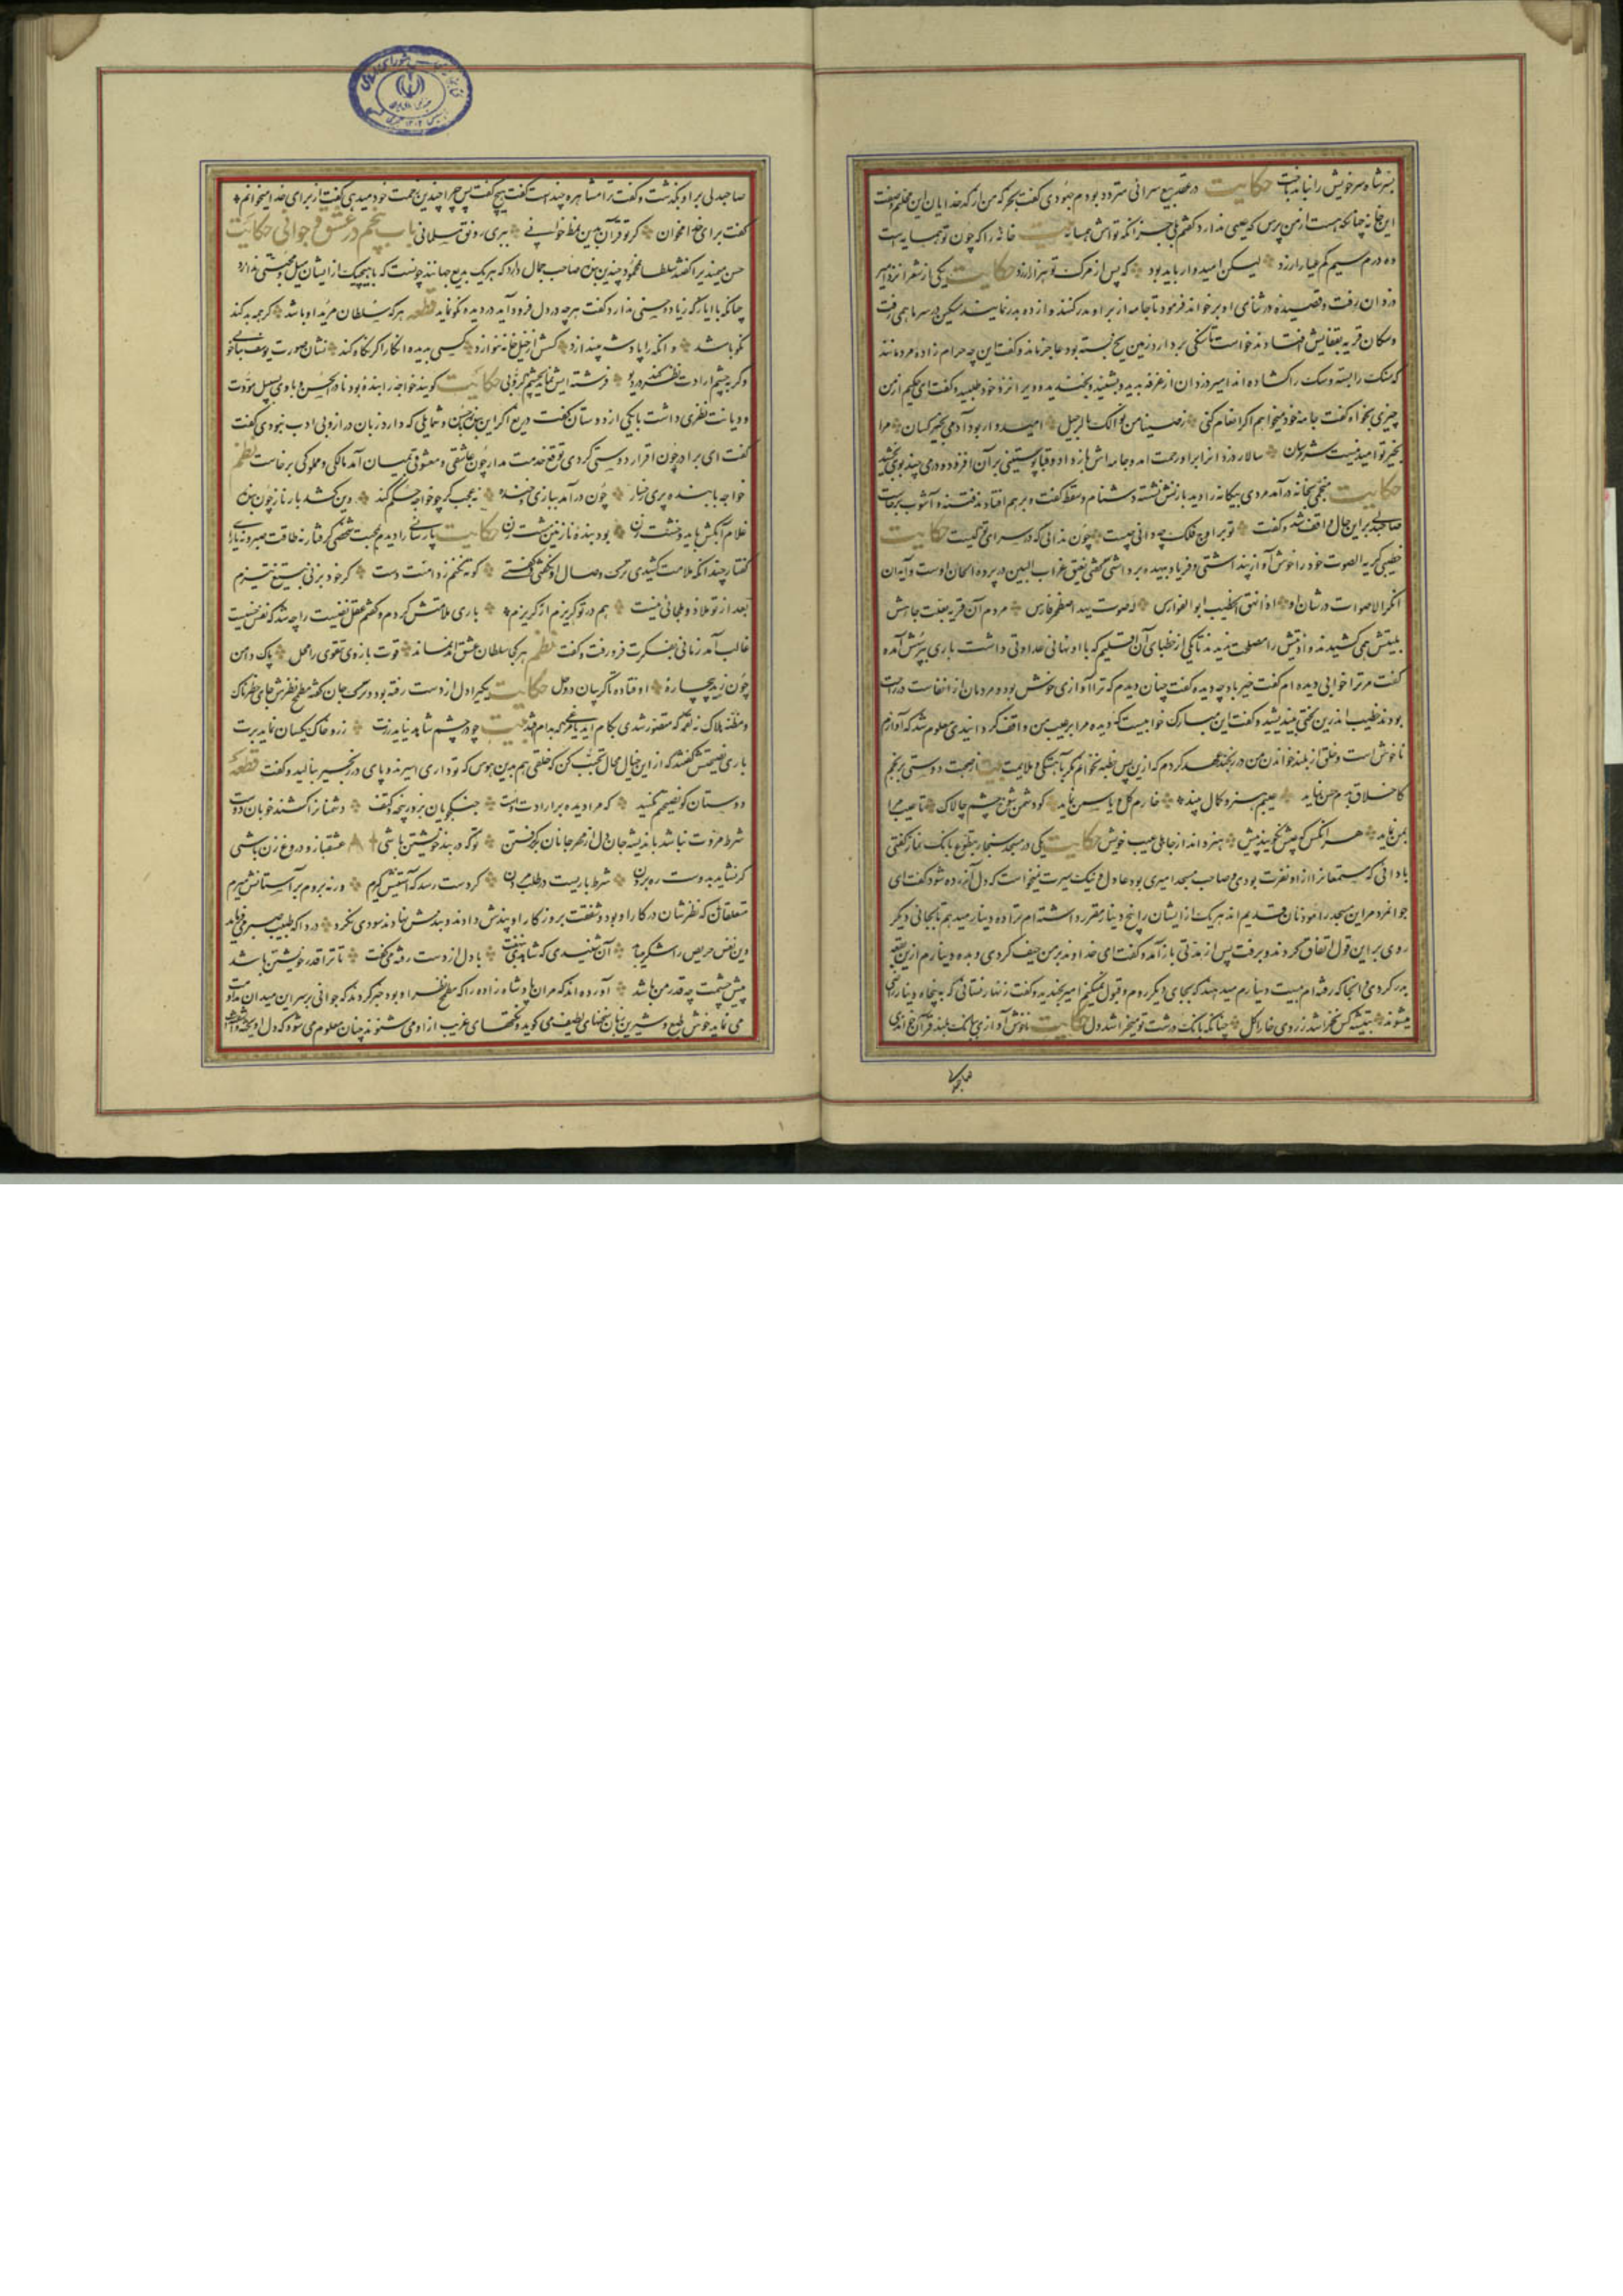 بسرشاه سر خویش را نباید باخت حکایت در عقد بیع سرائی متردد بودم جهودی گفت بخر که من از کدخدایان این محلتم وصفت
این خانه چنانکه هست از من پرس که عیبی ندارد گفتم بلی بجز آنکه تو اش همسایه بیت خانه را که چون تو همسایه است
ده درم سیم کم عیار ارزد لیکن امیدوار باید بود که پس از مرک تو هزار ارزد حکایت یکی از شعرا نزد امیر
دزدان رفت و قصیده در ثنای او بر خواند فرمود تا جامه از بر او بدر کنند و از ده بدر نمایند مسکین در سرما همی رفت
و سکان قریه بقفایش افتادند خواست تا سنکی بردارد زمین یخ بسته بود عاجز ماند و گفت این چه حرام زاده مردمانند
که سنک را بسته و سک را کشاده اند امیر دزدان از غرفه بدید و بشنید و بخندید و ویرا نزد خود طلبید و گفت ای حکیم از من
چیزی بخواه گفت جامه خود میخواهم اگر انعام کنی رضینا من نوالک بالرحیل امیدوار بود آدمی بخیر کسان مرا
بخیر تو امید نیست شر مرسان سالار دزدانرا برا و رحمت امد و جامه اش باز داد و قبا پوستینی بر آن افزود و درمی چند بوی بخشید
حکایت منجمی بخانه در آمد مردی بیکانه را دید با زنش نشسته دشنام و سقط گفت و برهم افتادند فتنه و آشوب برخاست
صاحبدلی براین حال واقف شد و گفت تو بر اوج فلک چه دانی چیست چون ندانی که در سرای تو کیست حکایت
خطیبی کریه الصوت خود را خوش آواز پنداشتی و فریاد بیهده برداشتی گفتی نعیق غراب البین در پرده الحان اوست و آیه ان
انکر الاصوات در شان او اذا نهق الخطیب ابو الفوارس له صوت یهد اصطخر فارس مردم آن قریه بعلت جاهش
بلیتش همی کشیدند و اذیتش را مصلحت ندیدند تا یکی از خطبای آن اقلیم که با او نهانی عداوتی داشت باری بپرسش آمده
گفت مر ترا خوابی دیده ام گفت خیر باد چه دیده گفت چنان دیدم که ترا آوازی خوش بود و مردمان از انفاست در راحت
بودند خطیب اندرین لختی بیندیشید و گفت این مبارک خوابیست که دیده مرا بر عیب من واقف کردانیدی معلوم شد که آوازم
ناخوش است و خلق از بلند خواندن من در رنجند عهد کردم که ازین پس خطبه نخوانم مکر بآهستکی و ملایمت بیت از صحبت دوستی برنجم
کاخلاق بدم حسن نماید عیبم هنر و کمال بیند خارم کل و یاسمن نماید کو دشمن شوخ چشم چالاک تا عیب مرا
بمن نماید هر انکس که عیبش نکویند پیش هنر داند از جاهلی عیب خویش حکایت یکی در مسجد سنجار بتطوع بانک نماز گفتی
باداتی که مستمعانرا ازو نفرت بودی و صاحب مسجد امیری بود عادل و نیک سیرت نمیخواست که دل آزرده شود گفت ای
جوانمرد مراین مسجد را موذنان قدیم اند هر یک از ایشان را پنج دینار مقرر داشته ام ترا ده دینار میدهم تا بجائی دیکر
روی براین قول اتفاق کردند و برفت پس از مدتی باز آمد و گفت ای خداوند بر من حیف کردی و بده دینارم ازین بقعه
بدر کردی انجا که رفته ام بیست دینارم میدهند که بجای دیکر روم و قبول نمیکنم امیر بخندید و گفت زنهار نستانی که به پنجاه دینار راضی
میشوند بتیشه کس نخراشد ز روی خارا کل چنانکه بانک درشت تو میخراشد دل حکایت ناخوش آوازی ببانک بلند قرآن خواندی
صاحبدلی
صاحبدلی براو بگذشت و گفت ترا مشاهره چند است گفت هیچ گفت پس چرا چندین زحمت خود میدهی گفت از برای خدا میخوانم
گفت برای خدا مخوان گر تو قرآن بدین نمط خوانی ببری رونق مسلمانی باب پنجم در عشق و جوانی حکایت
حسن میمندیرا گفتند سلطان محمود چندین بنده صاحب جمال دارد که هر یک بدیع جهانند چونست که با هیچیک از ایشان میل و محبتی ندارد
چنانکه با ایاز که زیادت حسنی ندارد گفت هر چه در دل فرود آید در دیده نکو نماید قطعه هر که سلطان مرید او باشد گر همه بد کند
نکو باشد وانکه را پادشه بیندازد کسش از خیل خانه ننوازد کسی بدیده انکار اگر نکاه کند نشان صورت یوسف دهد بناخوبی
وگر بچشم ارادت نظر کند در دیو فرشته ایش نماید بچشم کروبی حکایت گویند خواجه را بنده بود نادر الحسن و با وی بسبیل مودت
و دیانت نظری داشت با یکی از دوستان گفت دریغ اگر این بنده من با حسن و شمایلی که دارد زبان دراز و بی ادب نبودی گفت
گفت ای برادر چون اقرار دوستی کردی توقع خدمت مدار چون عاشقی و معشوقی بمیان آمد مالکی و مملوکی برخاست نظم
خواجه با بنده پری رخسار چون در آمد ببازی و خنده نه عجب گر چو خواجه حکم کند وین کشد بار ناز چون بنده
غلام آبکش باید و خشت زن بود بنده نازنین مشت زن حکایت پارسائی را دیدم بمحبت شخصی گرفتار نه طاقت صبر و نه یارای
گفتار چندانکه ملامت کشیدی ترک وصال او نکفتی و گفتی کوته نکنم ز دامنت دست گر خود بزنی بتیغ تیزم
بعد از تو ملاذ و ملجائی نیست هم در تو گریزم ار گریزم باری ملامتش کردم و گفتم عقل نفیست را چه شد که نفس خسیست
غالب آمد زمانی بفکرت فرو رفت و گفت نظم هر کجا سلطان عشق آمد نماند قوت بازوی تقوی را محل پاک دامن
چون زید بیچاره اوفتاده تا گریبان در وحل حکایت یکیرا دل از دست رفته بود و ترک جان گفته مطمح نظرش جای خطرناک
و مظنه هلاک نه لقمه که متصور شدی بکام اید یا مرغی که بدام افتد بیت چو در چشم شاهد نیاید زرت زر و خاک یکسان نماید برت
باری نصیحتش گفتند که از این خیال محال تجنب کن که خلقی هم بدین هوس که تو داری اسیرند و پای در زنجیر بنالید و گفت قطعه
دوستان گو نصیحتم نکنید که مرا دیده بر ارادت اوست جنگجویان بزور پنجه و کتف دشمنانرا کشند و خوبان دوست
شرط مروت نباشد باندیشه جان دل از مهر جانان برگرفتن تو که در بند خویشتن باشی عشقباز دروغ زن باشی
گر نشاید بدوست ره بردن شرط یاریست در طلب مردن گر دست رسد که آستینش گیرم ورنه بروم بر آستانش میرم
متعلقانش که نظر شان در کار او بود و شفقت بروزکار او پندش دادند و بندش نهادند سودی نکرد دردا که طبیب صبر میفرماید
وین نفس حریص را شکر میباید آن شنیدی که شاهدی بنهفت با دل از دست رفته می گفت تا ترا قدر خویشتن باشد
پیش چشمت چه قدر من باشد آورده اند که مران پادشاه زاده را که مطمح نظر او بود خبر کردند که جوانی بر سر این میدان مداومت
می نماید خوش طبع و شیرین زبان سخنهای لطیف می گوید و نکتهای غریب ازاو می شنوند چنان معلوم می شود که دل آویخته